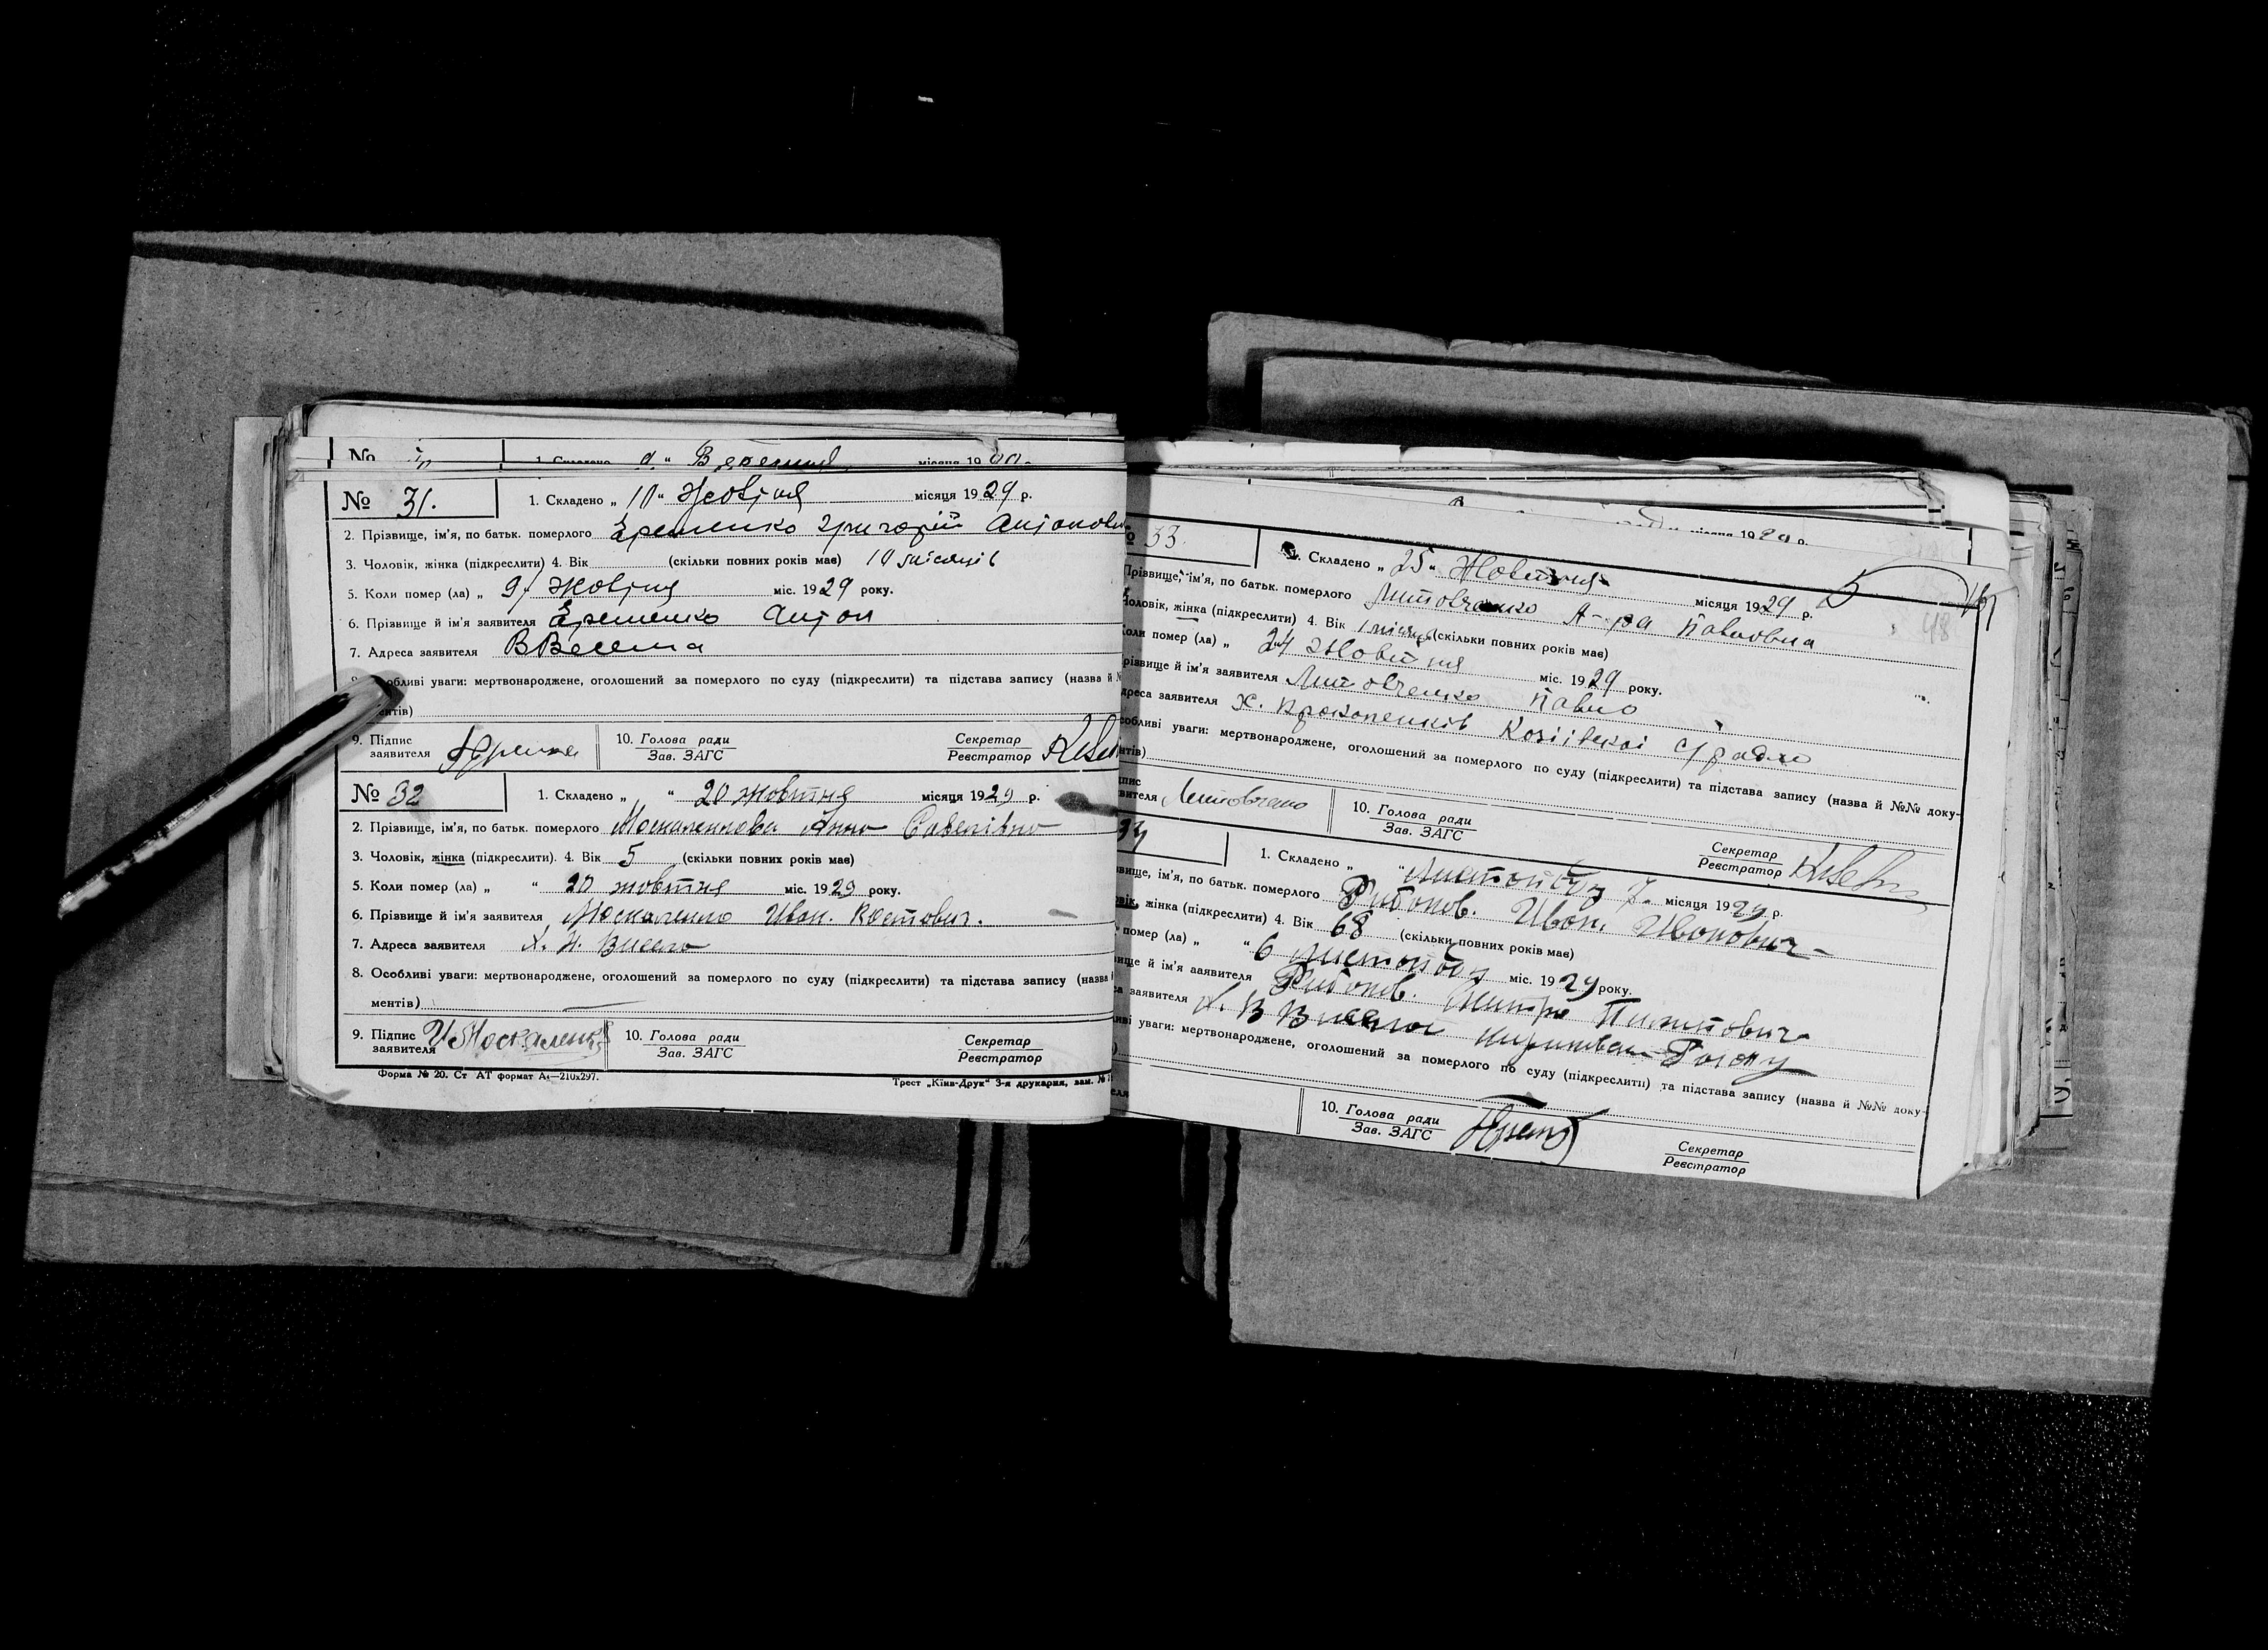 № 1. Складено „ 9 “ Вересня місяця 19
№ 31. 1. Складено „ 10 “ Жовтня місяця 1929 р.
2. Прізвище, ім'я, по батьк. померлого Єременко Григорій Антонови
3. Чоловік, жінка (підкреслити) 4. Вік (скільки повних років має) 10 місяців
5. Коли помер (ла) „ 9 “ Жовтня міс. 1929 року.
6. Прізвище й ім'я заявителя Єременко Антон
7. Адреса заявителя ВВесела
обливі уваги: мертвонароджене, оголошений за померлого по суду (підкреслити) та підстава запису (назва й №
ентів)
9. Підпис заявителя
10. Голова ради Зав. ЗАГС Секретар Реєстратор
№ 32 1. Складено „ “ 20 жовтня місяця 1929 р.
2. Прізвище, ім'я, по батьк. померлого Москаленкова Анна Савелівна
3. Чоловік, жінка (підкреслити). 4. Вік 5 (скільки повних років має)
5. Коли помер (ла) „ “ 20 жовтня міс. 1929 року.
6. Прізвище й ім'я заявителя Москаленко Иван. Костович.
7. Адреса заявителя Х. Н.
8. Особливі уваги: мертвонароджене, оголошений за померлого по суду (підкреслити) та підстава запису (назва
ментів)
9. Підпис заявителя И Москаленко
10. Голова ради Зав. ЗАГС Секретар Реєстратор
Форма № 20. Ст АТ формат А₄—210x297. Трест „Київ-Друк“ 3-я друкарня, зам. №
місяця 1929 р.
33. 1. Складено „ 25 “ Жовтня місяця 1929 р.
48
Прізвище, ім'я, по батьк. померлого Литовченко А-ра Павловна
Чоловік, жінка (підкреслити) 4. Вік 1 місяць (скільки повних років має)
Коли помер (ла) „ 24 Жовтня міс. 1929 року.
різвище й ім'я заявителя Литовченко Павло
дреса заявителя Х. Прокопенків Козіївскоі с/ради
собливі уваги: мертвонароджене, оголошений за померлого по суду (підкреслити) та підстава запису (назва й №№ доку-
нтів)
пис вителя Литовчено
10. Голова ради Зав. ЗАГС Секретар Реєстратор
34 1. Складено „ “ Листопаду 7. місяця 1929 р.
вище, ім'я, по батьк. померлого Иван. Иванович
вік, жінка (підкреслити) 4. Вік 68 (скільки повних років має)
помер (ла) „ “ 6 листопаду міс. 1929 року.
вище й ім'я заявителя Митро
са заявителя Х. В Району
иві уваги: мертвонароджене, оголошений за померлого по суду (підкреслити) та підстава запису (назва й №№ доку-
10. Голова ради Зав. ЗАГС Секретар Реєстратор